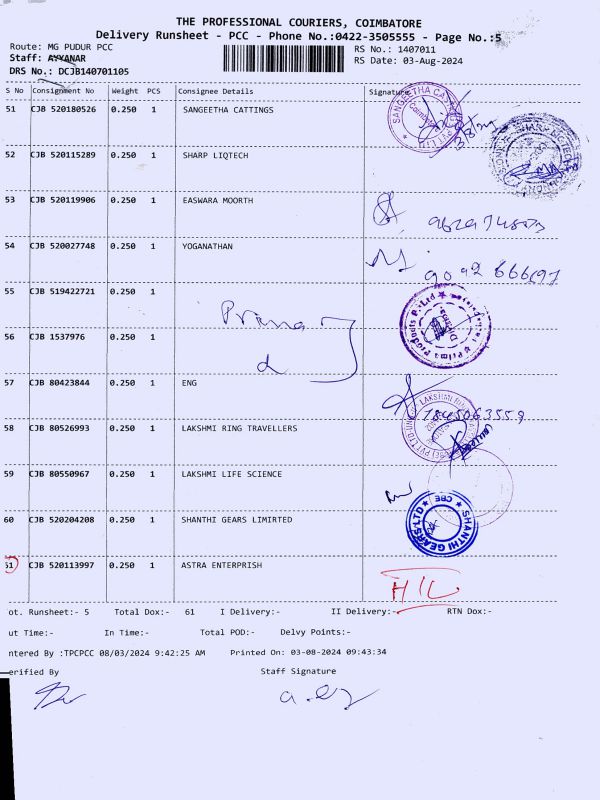 THE PROFESSIONAL COURIERS, COIMBATORE
Delivery Runsheet - PCC - Phone No.:0422-3505555 - Page No.:5
Route: MG PUDUR PCC
RS No.: 1407011
Staff: AYYANAR
RS Date: 03-Aug-2024
DRS No.: DCJB140701105
S No Consignment No Weight PCS Consignee Details Signature
51 CJB 520180526 0.250 1 SANGEETHA CATTINGS
52 CJB 520115289 0.250 1 SHARP LIQTECH
53 CJB 520119906 0.250 1 EASWARA MOORTH
54 CJB 520027748 0.250 1 YOGANATHAN
55 CJB 519422721 0.250 1
56 CJB 1537976 0.250 1
57 CJB 80423844 0.250 1 ENG
7845063559
58 CJB 80526993 0.250 1 LAKSHMI RING TRAVELLERS
59 CJB 80550967 0.250 1 LAKSHMI LIFE SCIENCE
60 CJB 520204208 0.250 1 SHANTHI GEARS LIMIRTED
SHANTHI GEARS LTD CBE
51 CJB 520113997 0.250 1 ASTRA ENTERPRISH
ot. Runsheet:- 5 Total Dox:- 61 I Delivery:- II Delivery:- RTN Dox:-
ut Time:- In Time:- Total POD:- Delvy Points:-
ntered By :TPCPCC 08/03/2024 9:42:25 AM Printed On: 03-08-2024 09:43:34
erified By Staff Signature